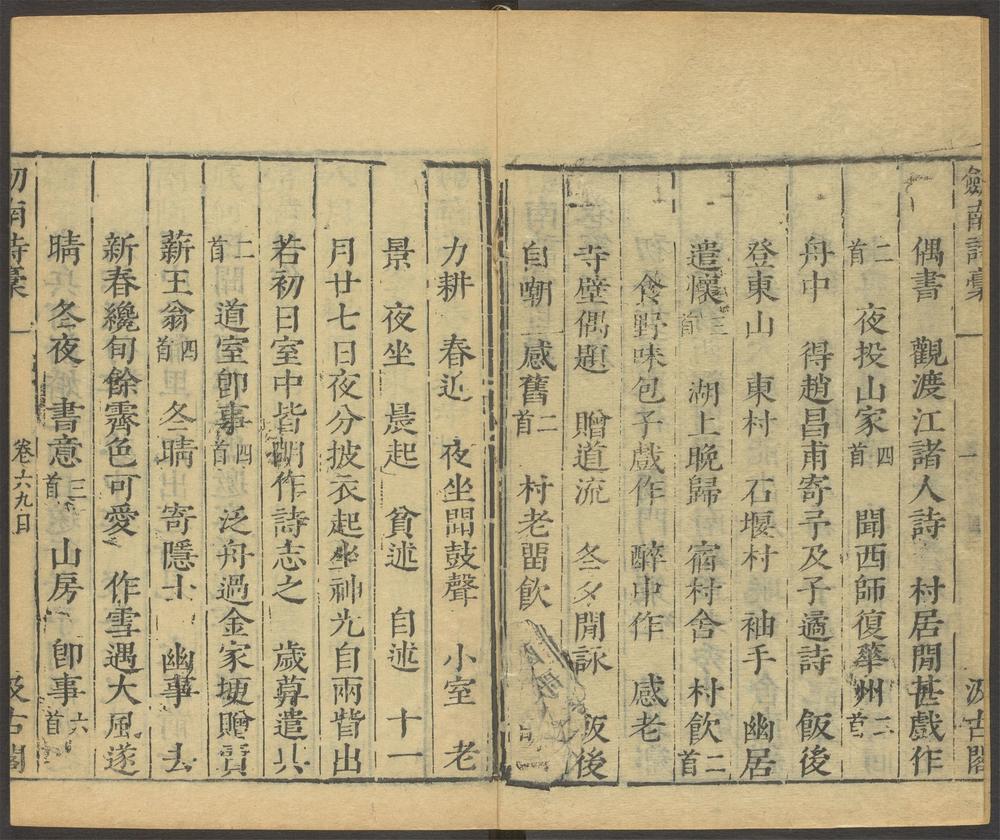 劒南詩稾 一 汲古閣
偶書 觀渡江諸人詩 村居閒甚戲作
二首 夜投山家四首 聞西師復華州二首
舟中 得趙昌甫寄予及子遹詩 飯後
登東山 東村 石堰村 袖手 幽居
遣懷三首 湖上晚歸 宿村舍 村飲二首
食野味包子戲作 醉中作 感老
寺壁偶題 贈道流 冬夕閒詠 飯後
自嘲 感舊二首 村老留飲
力耕 春近 夜坐聞鼓聲 小室 老
景 夜坐 晨起 貧述 自述 十一
月廿七日夜分披衣起坐神光自兩眥出
若初日室中皆明作詩志之 歲莫遣興
二首 道室卽事四首 泛舟過金家埂贈賣
薪王翁四首 冬晴出 寄隱士 幽事 去
新春纔旬餘霽色可愛 作雪遇大風遂
晴 冬夜 書意三首 山房 卽事六首
劒南詩稾 一 卷六九目 汲古閣